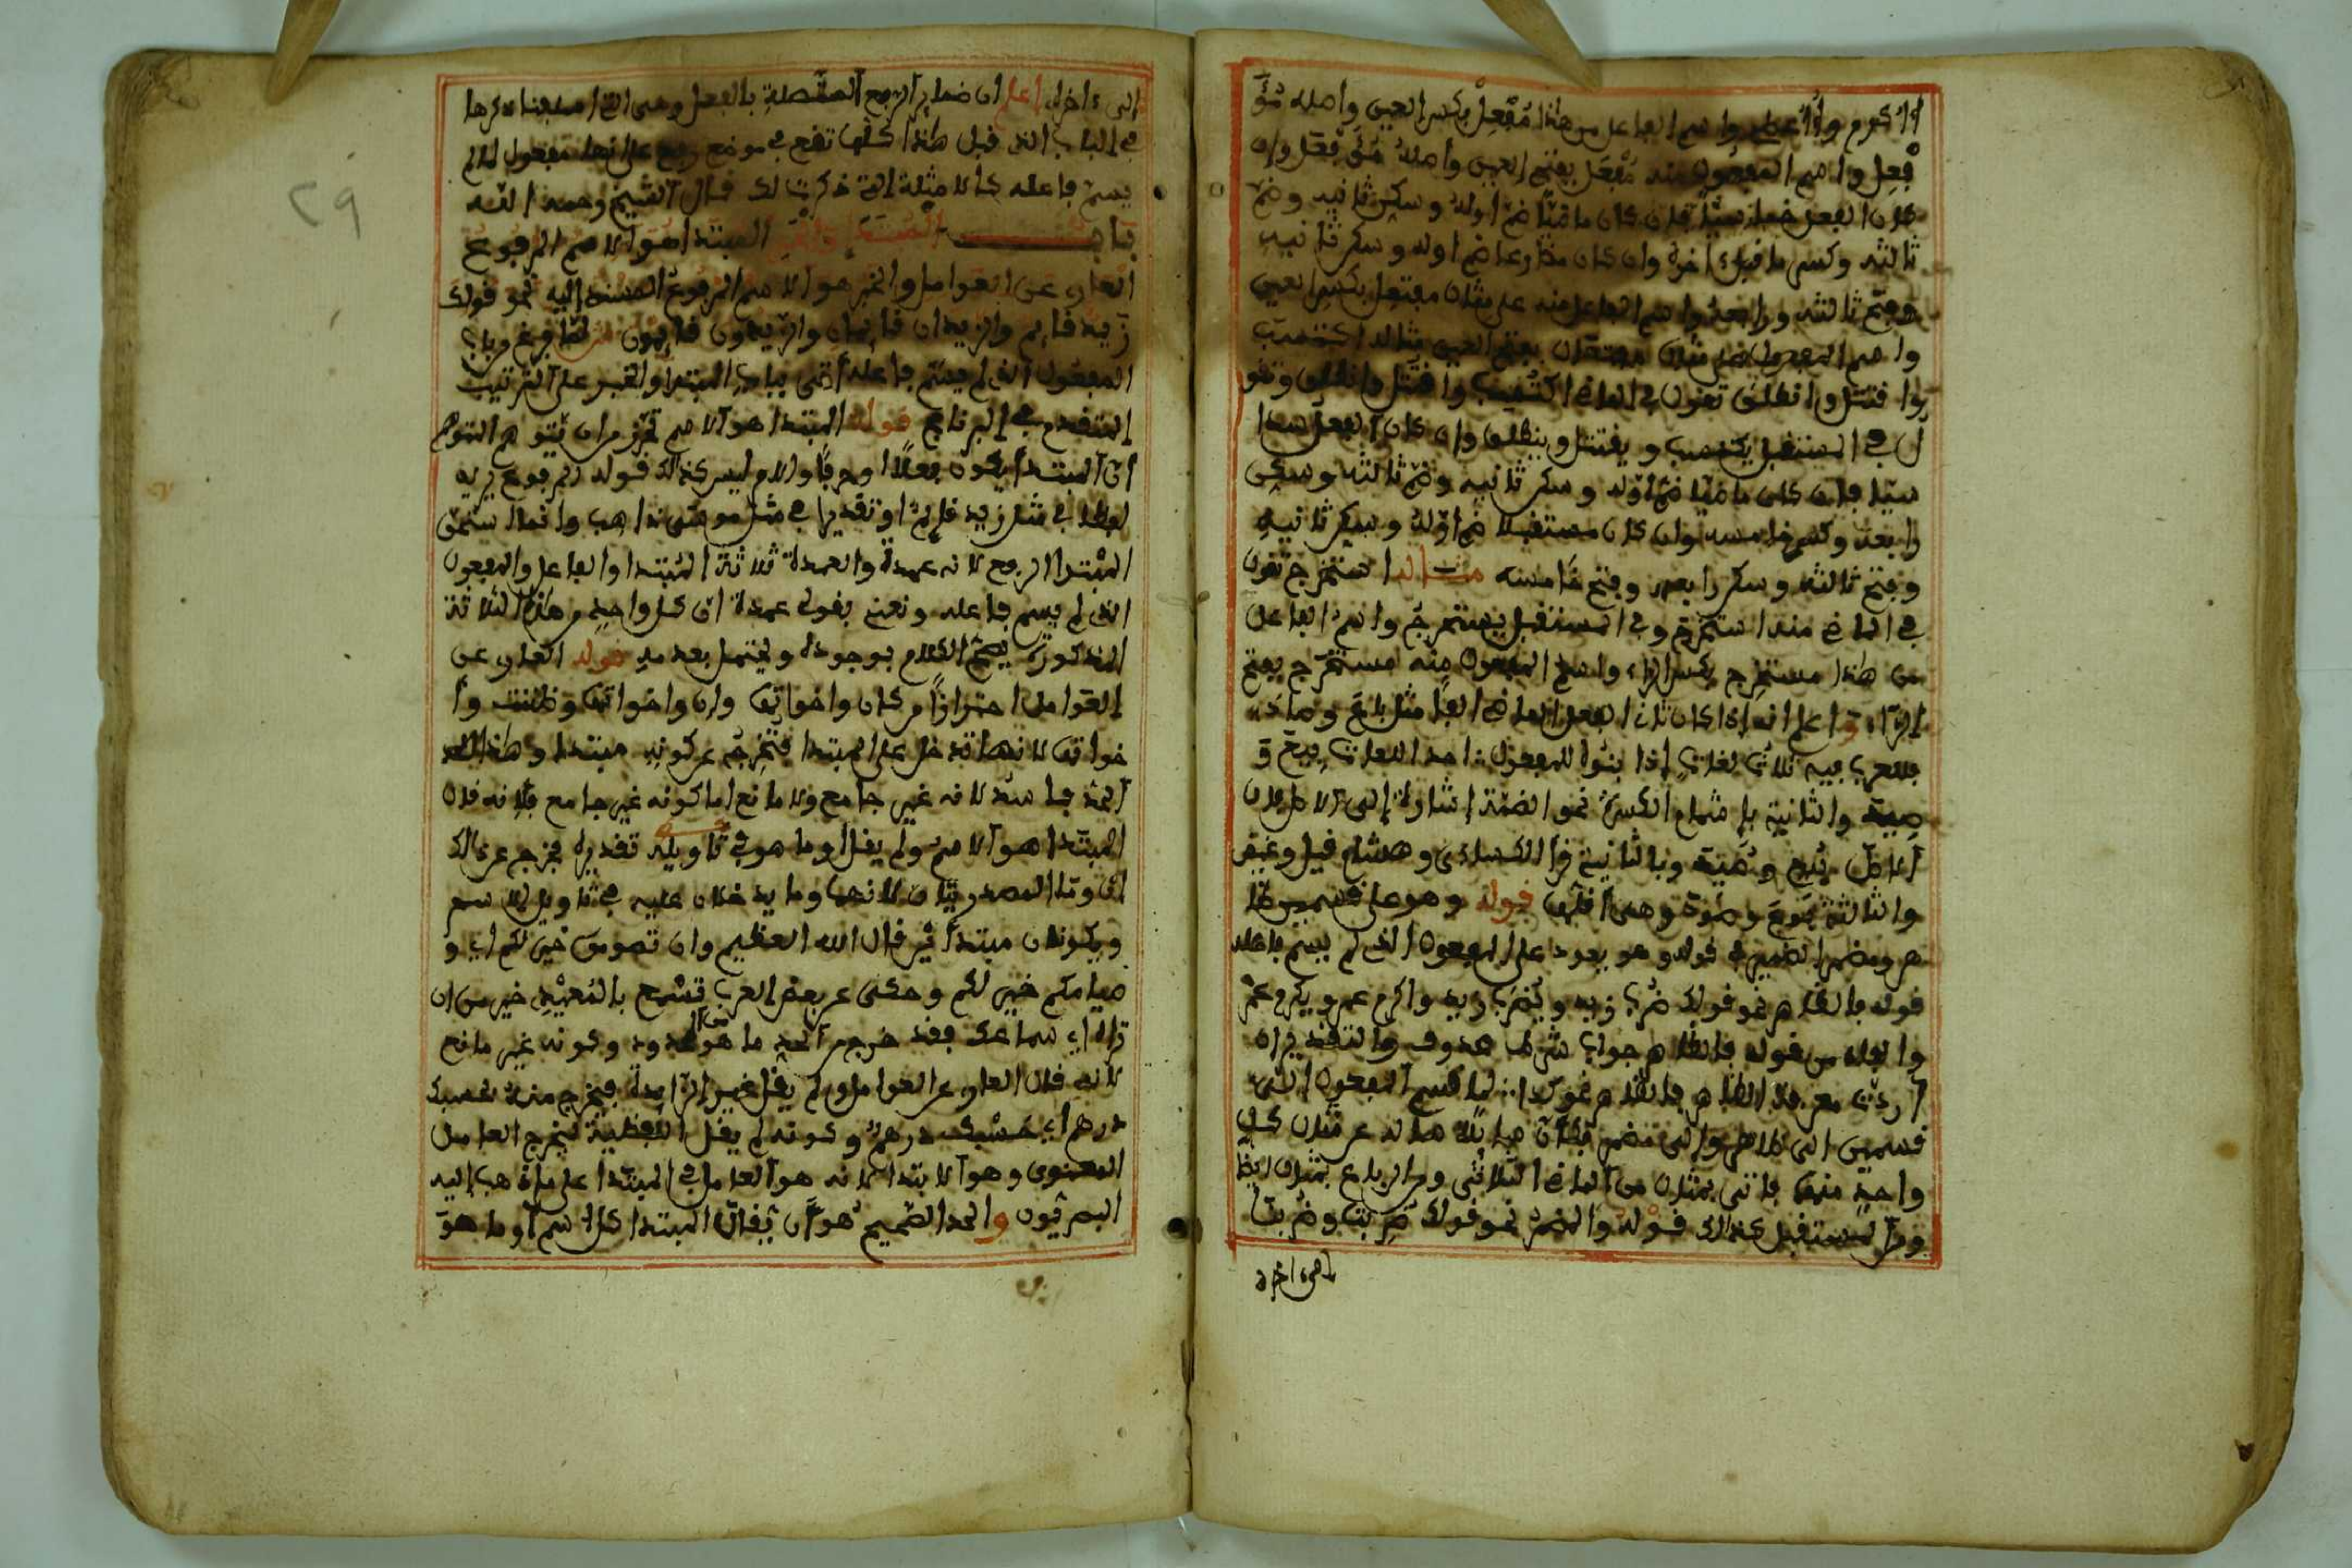 أو أكرم وأعظم واسم الفاعل من هذا مفعل بكسر العين وأصله مؤ
فعل واسم المفعول منه مفعل بفتح العين وأصله مؤفعل وإن
كان الفعل خماسيا فإن كان ماضيا ضم أوله وسكن ثانيه وضم
ثالثه وكسر ما قبل ءاخره وإن كان مضارعا ضم أوله وسكن ثانيه
وفتح ثالثه ورابعه واسم الفاعل منه على مثال مفتعل بكسر العين
واسم المفعول على مثال مفتعل بفتح العين مثاله اكتسب
وافتتل وانطلق تقول في الماضي اكتسب وافتتل وانطلق وتقو
ل في المستقبل يكتسب ويفتتل وينطلق وإن كان الفعل سدا
سيا فإن كان ماضيا ضم أوله وسكن ثانيه وضم ثالثه وسكن
رابعه وكسر خامسه وإن كان مستقبلا ضم أوله وسكن ثانيه
وفتح ثالثه وسكن رابعه وفتح خامسه مثاله استخرج تقول
في الماضي منه استخرج وفي المستقبل يستخرج واسم الفاعل
من هذا مستخرج بكسر الراء واسم المفعول منه مستخرج بفتح
الراء واعلم أنه إذا كان ثاني الفعل الماضي ألفا مثل باع وصاغ
فللعرب فيه ثلاث لغات إذا بنوه للمفعول أحد اللغات بيع و
صيغ والثانية بإشمام الكسرة نحو الضمة إشارة إلى الأصل لأن
أصل بيع وبالثانية قرأ الكسائي وهشام قيل وغيض
والثالثة بوع وصوغ وهي أقلها قوله وهو على قسمين ظا
هر ومضمر الضمير في قوله وهو يعود على المفعول الذي لم يسم فاعله
قوله فالظاهر نحو قولك ضرب زيد ويضرب زيد وأكرم عمرو ويكرم عمرو
والفاء من قوله فالظاهر جواب شرط محذوف والتقدير إن
أردت معرفة الظاهر فالظاهر نحو كذا لما قسم المفعول إلى
قسمين إلى ظاهر وإلى مضمر فكأن سائلا سأله عن مثال كل
واحد منهما فأتى بمثال من الماضي الثلاثي ومن الرباعي بمثال أيضا
ومن المستقبل كذالك قوله والمضمر نحو قولك ضربت وضربنا
إلى ءاخره
إلى ءاخره اعلم أن ضمائر الرفع المتصلة بالفعل وهي التي أسلفنا ذكرها
في الباب الذي قبل هذا كلها تقع في موضع رفع على أنها مفعول لم
يسم فاعله كالأمثلة التي ذكرت لك قال الشيخ رحمه الله
باب المبتدا والخبر المبتدا هو الاسم المرفوع
العاري عن العوامل والخبر هو الاسم المرفوع المسند إليه نحو قولك
زيد قايم والزيدان قايمان والزيدون قايمون لما فرغ من باب
المفعول الذي لم يسم فاعله أتى بباب المبتدا والخبر على الترتيب
المتقدم في البرنامج قوله المبتدا هو الاسم تحرز من أن يتوهم المتوهم
أن المبتدا يكون فعلا أو حرفا والأمر ليس كذالك قوله المرفوع يريد
لفظا في مثل زيد قايم أو تقديرا في مثل موسى ذاهب وإنما استحق
المبتدا الرفع لأنه عمدة والعمدة ثلاثة المبتدا والفاعل والمفعول
الذي لم يسم فاعله ونعني بقولي عمدة أن كل واحد من هذه الثلاثة
المذكورة يصح الكلام بوجوده ويختل بعدمه قوله العاري عن
العوامل احترازا من كان وأخواتها وإن وأخواتها وظننت وأ
خواتها لأنها تدخل على المبتدا فتخرجه عن كونه مبتدا وهذا
الحد فاسد لأنه غير جامع ولا مانع أما كونه غير جامع فلأنه قال
المبتدا هو الاسم ولم يقل أو ما هو في تأويله تقديرا فخرج عن ذالك
أن وما المصدريتان لأنهما وما يدخلان عليه في تأويل الاسم
ويكونان مبتدأ قال الله العظيم وأن تصوموا خير لكم أي و
صيامكم خير لكم وحكى عن بعض العرب تسمع بالمعيدي خير من أن
تراه أي سماعك فقد خرج من الحد ما هو من المحدود وكونه غير مانع
لأنه قال العاري عن العوامل ولم يقل غير الزايدة فيخرج منه بحسبك
درهم أي حسبك درهم وكونه لم يقل اللفظية ليخرج العامل
المعنوي وهو الابتدا لأنه هو العامل في المبتدا على ما ذهب إليه
البصريون والحد الصحيح هو أن يقال المبتدا كل اسم أو ما هو
٢٩